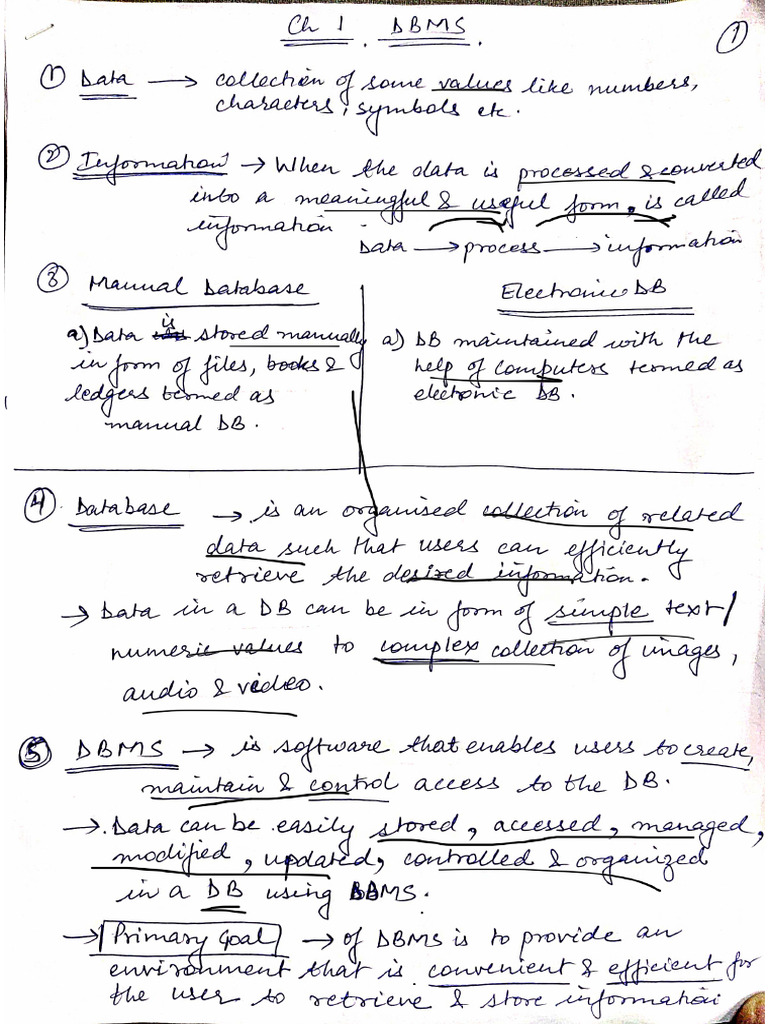 Ch 1 . DBMS .
1
① Data → collection of some values like numbers,
characters, symbols etc.
② Information → When the data is processed & converted
into a meaningful & useful form, is called
information
Data → process → information
③ Manual Database
a) Data is stored manually
in form of files, books &
ledgers termed as
manual DB.
Electronic DB
a) DB maintained with the
help of computers termed as
electronic DB.
④ Database → is an organised collection of related
data such that users can efficiently
retrieve the desired information.
→ Data in a DB can be in form of simple text/
numeric values to complex collection of images,
audio & video.
⑤ DBMS → is software that enables users to create,
maintain & control access to the DB.
→ Data can be easily stored, accessed, managed,
modified, updated, controlled & organized
in a DB using DBMS.
→ Primary Goal → of DBMS is to provide an
environment that is convenient & efficient for
the user to retrieve & store information